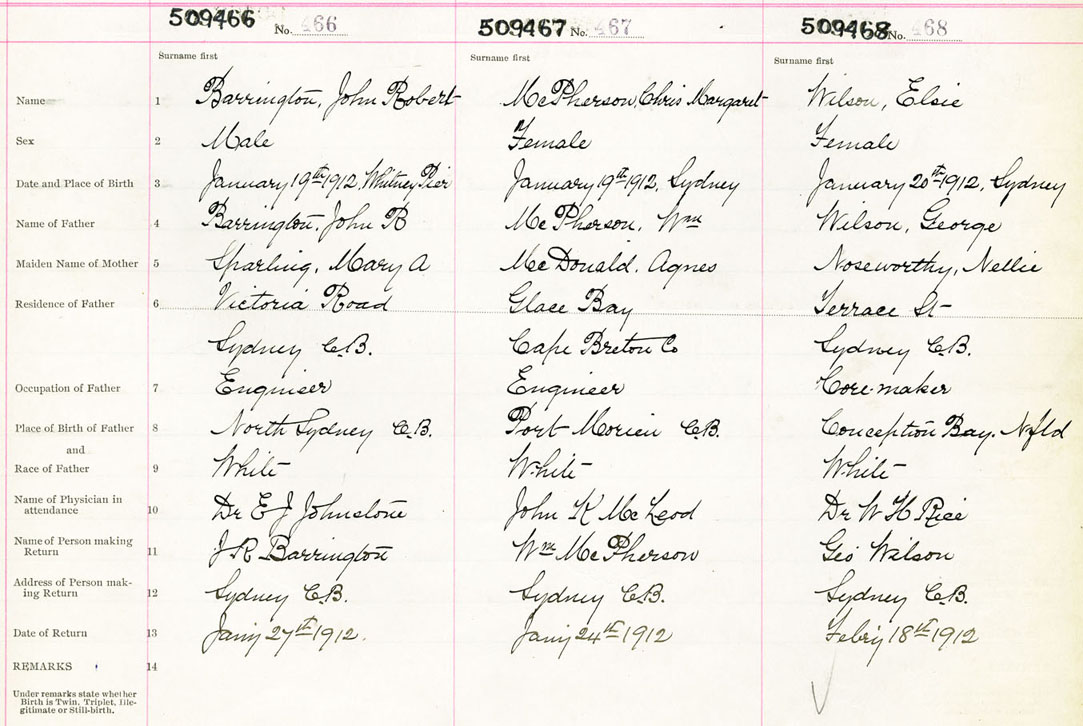 509466 No. 466 509467 No. 467 509468 No. 468
Surname first Surname first Surname first
Name 1 Barrington, John Robert McPherson, Chris Margaret Wilson, Elsie
Sex 2 Male Female Female
Date and Place of Birth 3 January 19th 1912, Whitney Pier January 19th 1912, Sydney January 20th 1912, Sydney
Name of Father 4 Barrington, John R McPherson, Wm Wilson, George
Maiden Name of Mother 5 Sparling, Mary A McDonald, Agnes Noseworthy, Nellie
Residence of Father 6 Victoria Road Glace Bay Terrace St
Sydney C.B. Cape Breton Co Sydney C.B.
Occupation of Father 7 Engineer Engineer Core-maker
Place of Birth of Father 8 North Sydney C.B. Port Morien C.B. Conception Bay. Nfld
and
Race of Father 9 White White White
Name of Physician in
attendance 10 Dr E J Johnstone John K McLeod Dr W H Rice
Name of Person making
Return 11 J R Barrington Wm McPherson Geo Wilson
Address of Person mak-
ing Return 12 Sydney C.B. Sydney C.B. Sydney C.B.
Date of Return 13 Jany 27th 1912. Jany 24th 1912 Febry 18th 1912
REMARKS 14
Under remarks state whether
Birth is Twin, Triplet, Ille-
gitimate or Still-birth.